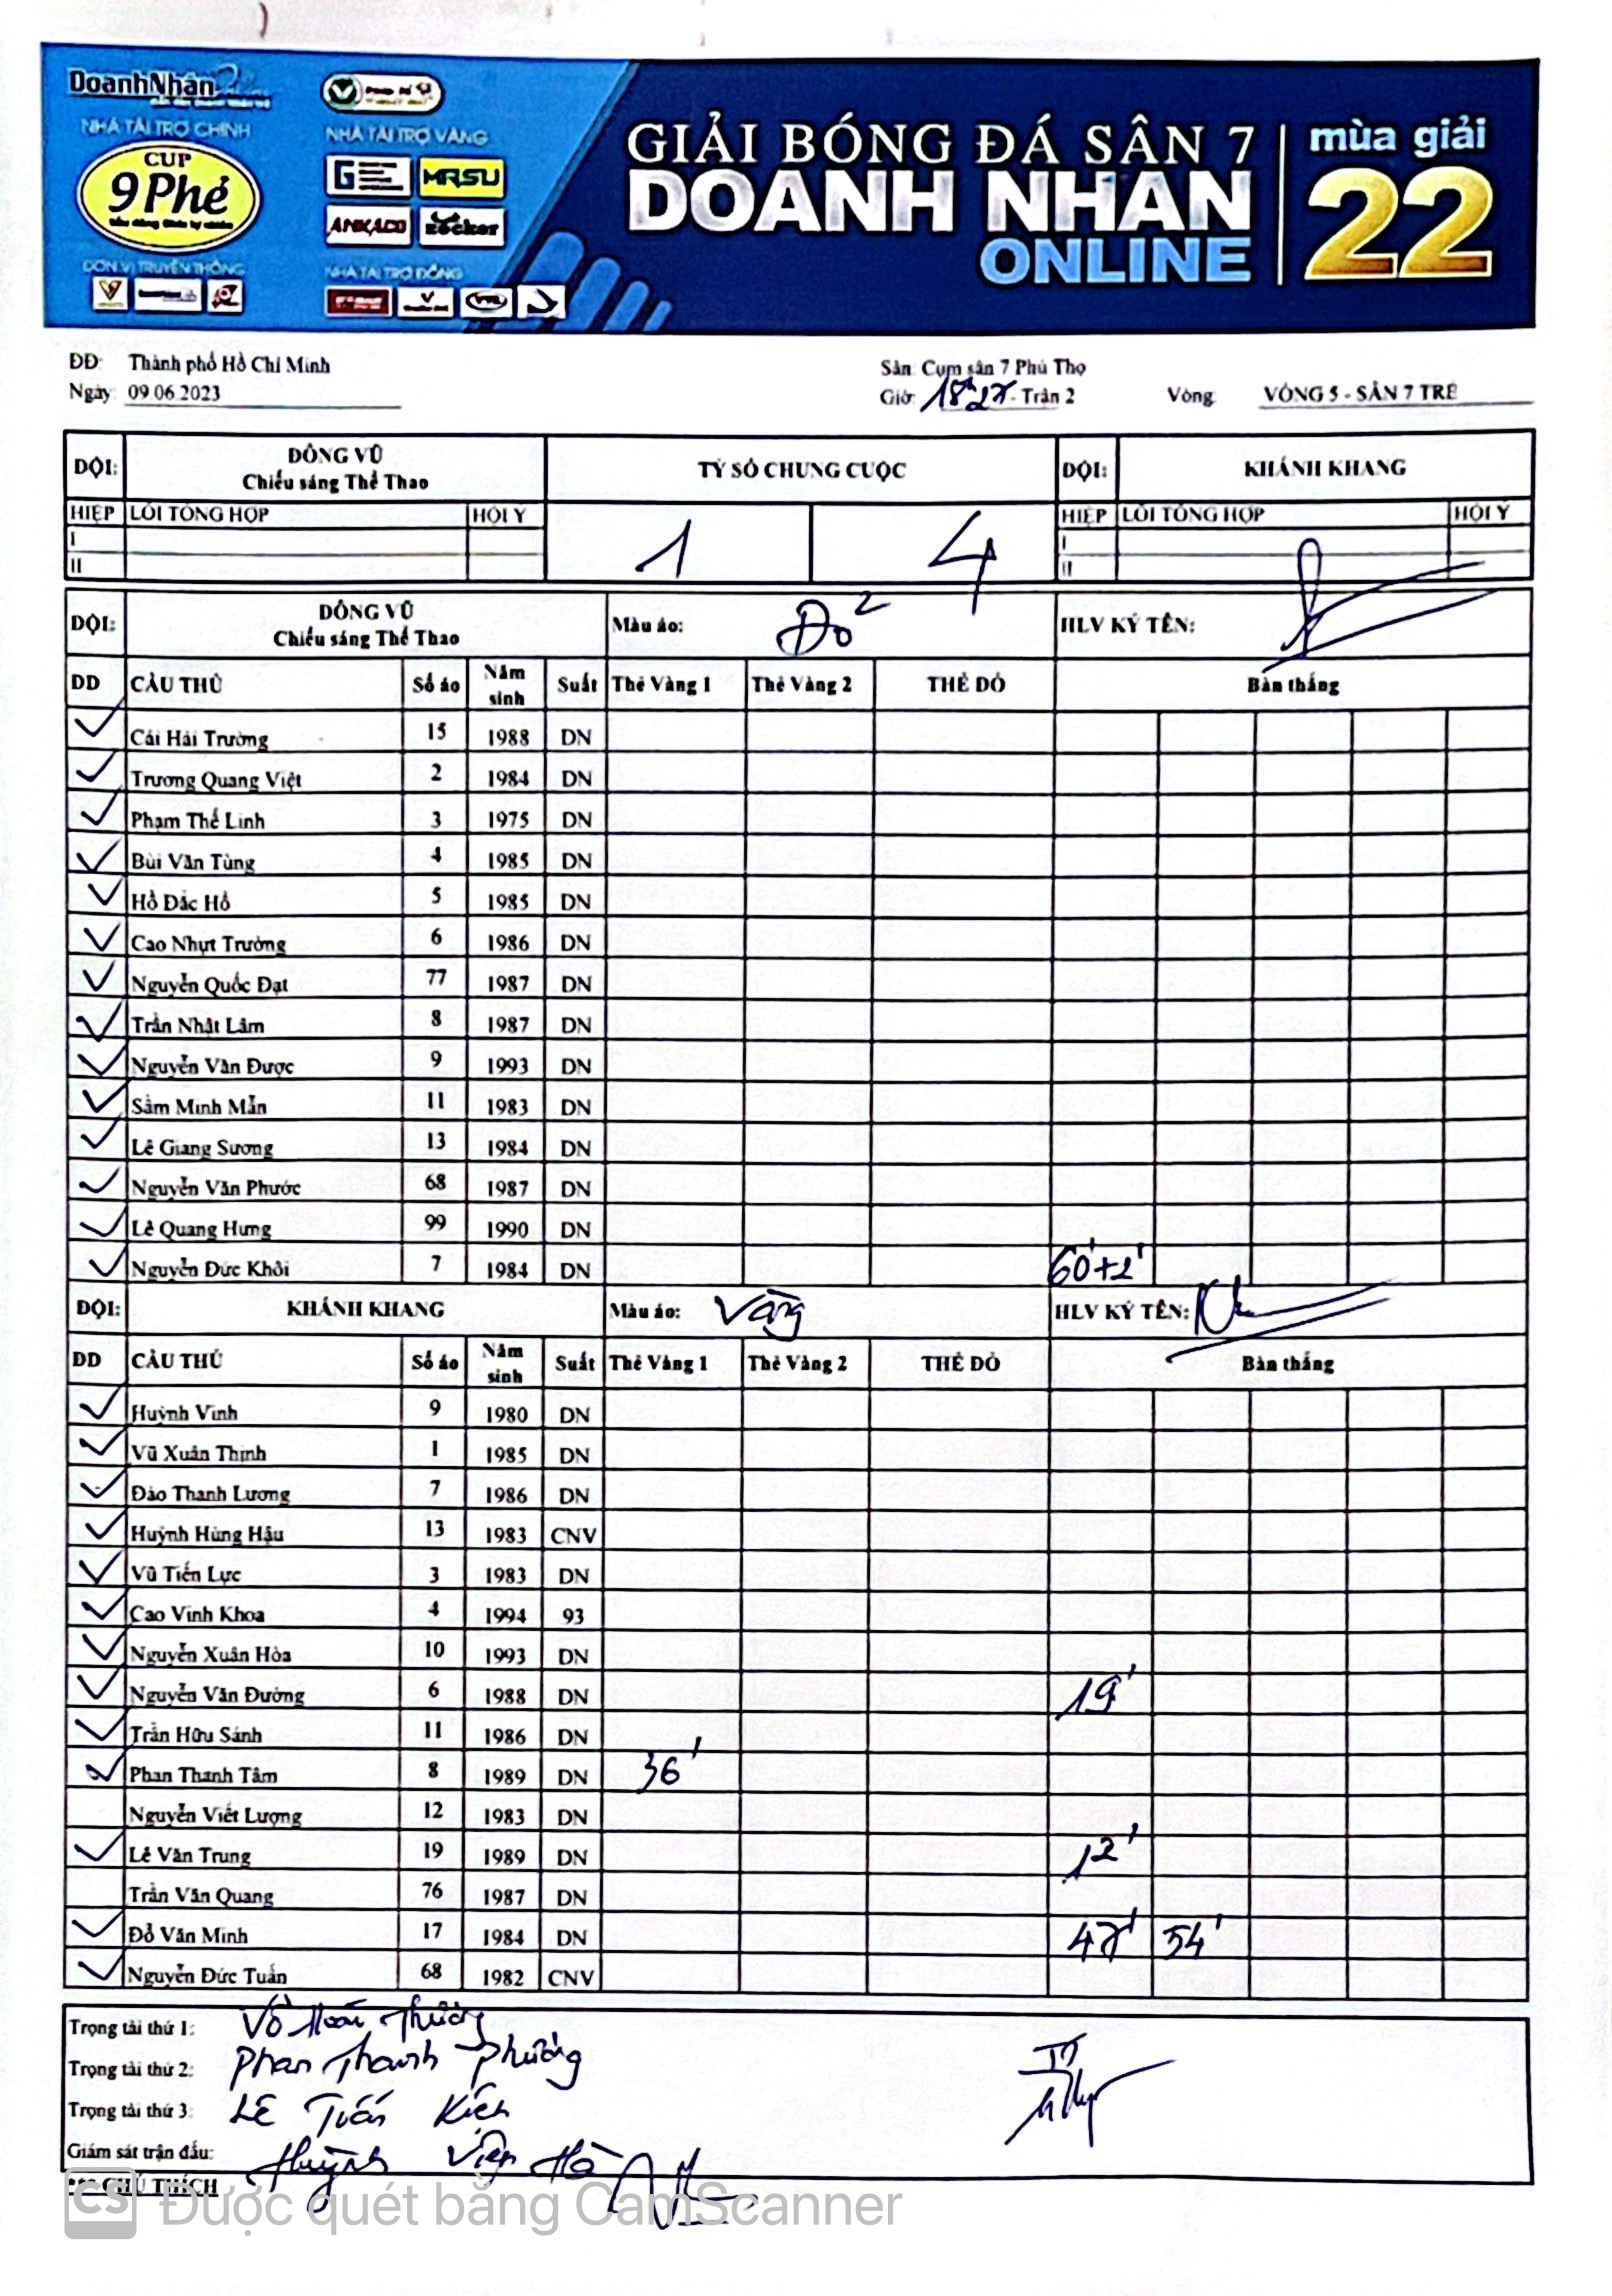 DoanhNhân
NHÀ TÀI TRỢ CHÍNH
CUP
9 Phẻ
NHÀ TÀI TRỢ VÀNG
MRSU
ANKACO
Zocker
ĐƠN VỊ TRUYỀN THÔNG
NHÀ TÀI TRỢ ĐỒNG
GIẢI BÓNG ĐÁ SÂN 7
DOANH NHAN
ONLINE
mùa giải
22
ĐĐ: Thành phố Hồ Chí Minh
Sân: Cụm sân 7 Phú Thọ
Ngày: 09.06.2023
Giờ: 18h27 - Trận 2
Vòng: VÒNG 5 - SÂN 7 TRẺ
ĐỘI: ĐÔNG VŨ
Chiếu sáng Thể Thao
TỶ SỐ CHUNG CUỘC
ĐỘI: KHÁNH KHANG
HIỆP LỖI TỔNG HỢP HỘI Ý
HIỆP LỖI TỔNG HỢP HỘI Ý
I
II
1 4
I
II
ĐỘI: ĐÔNG VŨ
Chiếu sáng Thể Thao
Màu áo: Đỏ
HLV KÝ TÊN:
DD CẦU THỦ Số áo Năm sinh Suất Thẻ Vàng 1 Thẻ Vàng 2 THẺ ĐỎ Bàn thắng
Cái Hải Trường 15 1988 DN
Trương Quang Việt 2 1984 DN
Phạm Thế Linh 3 1975 DN
Bùi Văn Tùng 4 1985 DN
Hồ Đắc Hồ 5 1985 DN
Cao Nhựt Trường 6 1986 DN
Nguyễn Quốc Đạt 77 1987 DN
Trần Nhật Lâm 8 1987 DN
Nguyễn Văn Được 9 1993 DN
Sầm Minh Mẫn 11 1983 DN
Lê Giang Sương 13 1984 DN
Nguyễn Văn Phước 68 1987 DN
Lê Quang Hưng 99 1990 DN
Nguyễn Đức Khôi 7 1984 DN 60'+2'
ĐỘI: KHÁNH KHANG Màu áo: Vàng HLV KÝ TÊN:
DD CẦU THỦ Số áo Năm sinh Suất Thẻ Vàng 1 Thẻ Vàng 2 THẺ ĐỎ Bàn thắng
Huỳnh Vinh 9 1980 DN
Vũ Xuân Thịnh 1 1985 DN
Đào Thanh Lương 7 1986 DN
Huỳnh Hùng Hậu 13 1983 CNV
Vũ Tiến Lực 3 1983 DN
Cao Vinh Khoa 4 1994 93
Nguyễn Xuân Hòa 10 1993 DN
Nguyễn Văn Đường 6 1988 DN 19'
Trần Hữu Sánh 11 1986 DN
Phan Thanh Tâm 8 1989 DN 36'
Nguyễn Viết Lượng 12 1983 DN
Lê Văn Trung 19 1989 DN 12'
Trần Văn Quang 76 1987 DN
Đỗ Văn Minh 17 1984 DN 47' 54'
Nguyễn Đức Tuấn 68 1982 CNV
Trọng tài thứ 1: Võ Hoài Thương
Trọng tài thứ 2: Phan Thanh Phương
Trọng tài thứ 3: Lê Tuấn Kiên
Giám sát trận đấu: Huỳnh Viện Hà
GHÚ THÍCH
CS Được quét bằng CamScanner